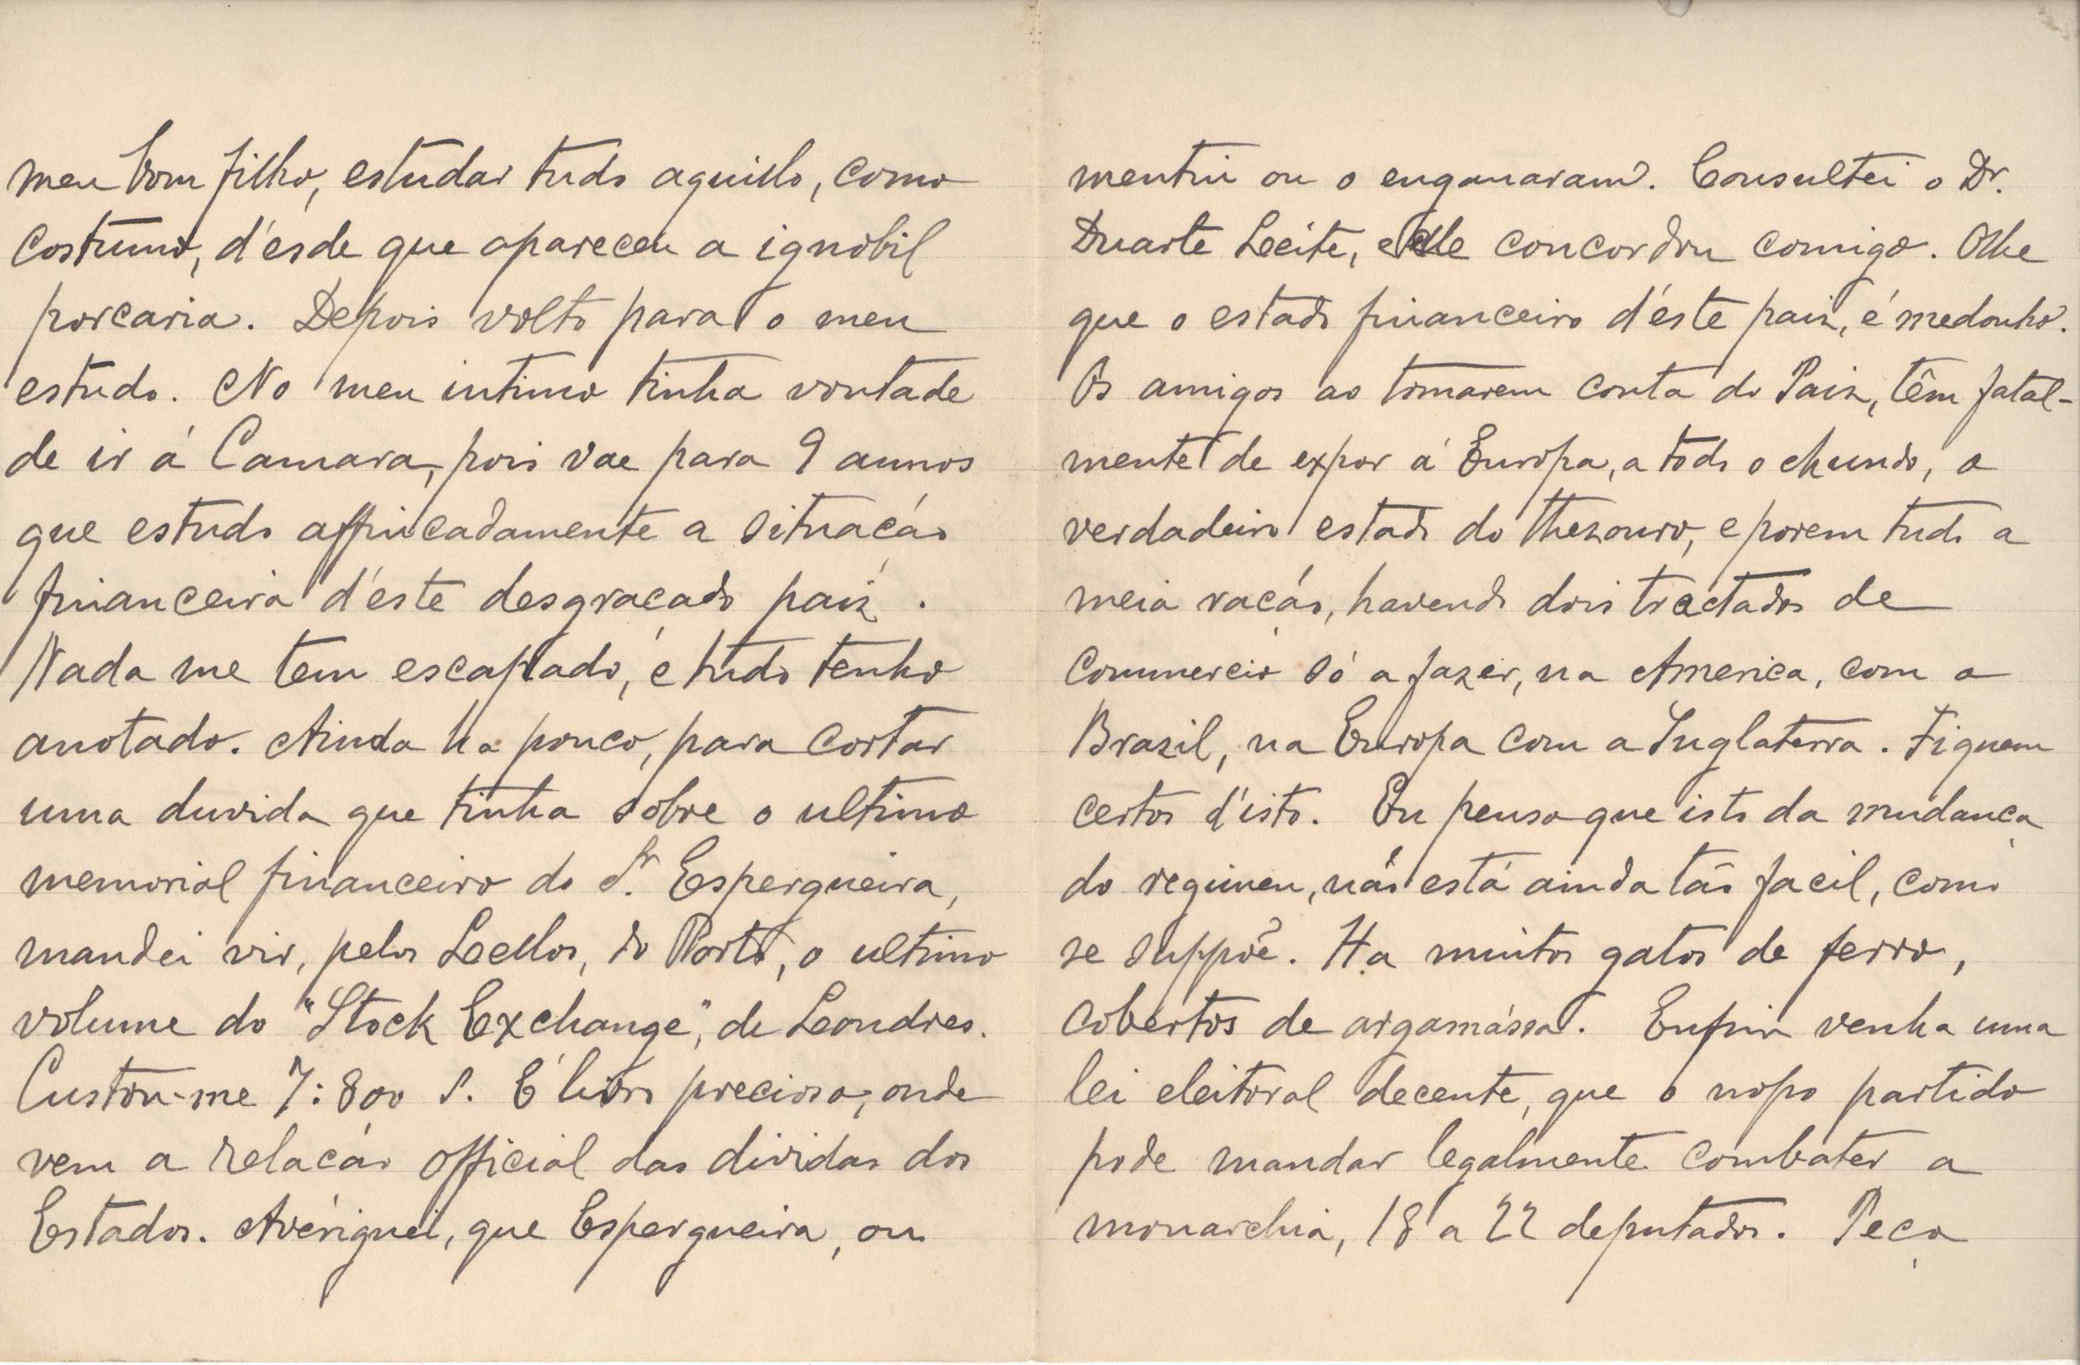 meu bom filho, estudar tudo aquillo, como
costumo, d'esde que apareceu a ignobil
porcaria. Depois volto para o meu
estudo. No meu intimo tinha vontade
de ir á Camara, pois vae para 9 annos
que estudo affincadamente a situação
financeira d'éste desgraçado paiz.
Nada me tem escapado, e tudo tenho
anotado. Ainda ha pouco, para cortar
uma duvida que tinha sobre o ultimo
memorial financeiro do Sr. Espergueira,
mandei vir, pelos Lellos, do Porto, o ultimo
volume do "Stock Exchange", de Leondres.
Custou-me 7:800 S. É livro precioso, onde
vem a relação official das dividas dos
Estados. Avériguei, que Espergueira, ou
mentiu ou o enganaram. Consultei o Dr.
Duarte Leite, e elle concordou comigo. Olhe
que o estado financeiro d'éste paiz, é medonho.
Os amigos ao tomarem conta do Paiz, têm fatal-
mente de expor á Európa, a todo o Mundo, o
verdadeiro estado do Thezouro, e porem tudo a
meia ração, havendo dois tractados de
commercio só a fazer, na America, com o
Brazil, na Európa com a Inglaterra. Fiquem
certos d'isto. Eu penso que isto da mudança
do regimen, não está ainda tão facil, como
se suppõe. Ha muitos gatos de ferro,
cobertos de argamássa. Enfim venha uma
lei eleitoral decente, que o nosso partido
pode mandar legalmente combater a
monarchia, 18 a 22 deputados. Peço